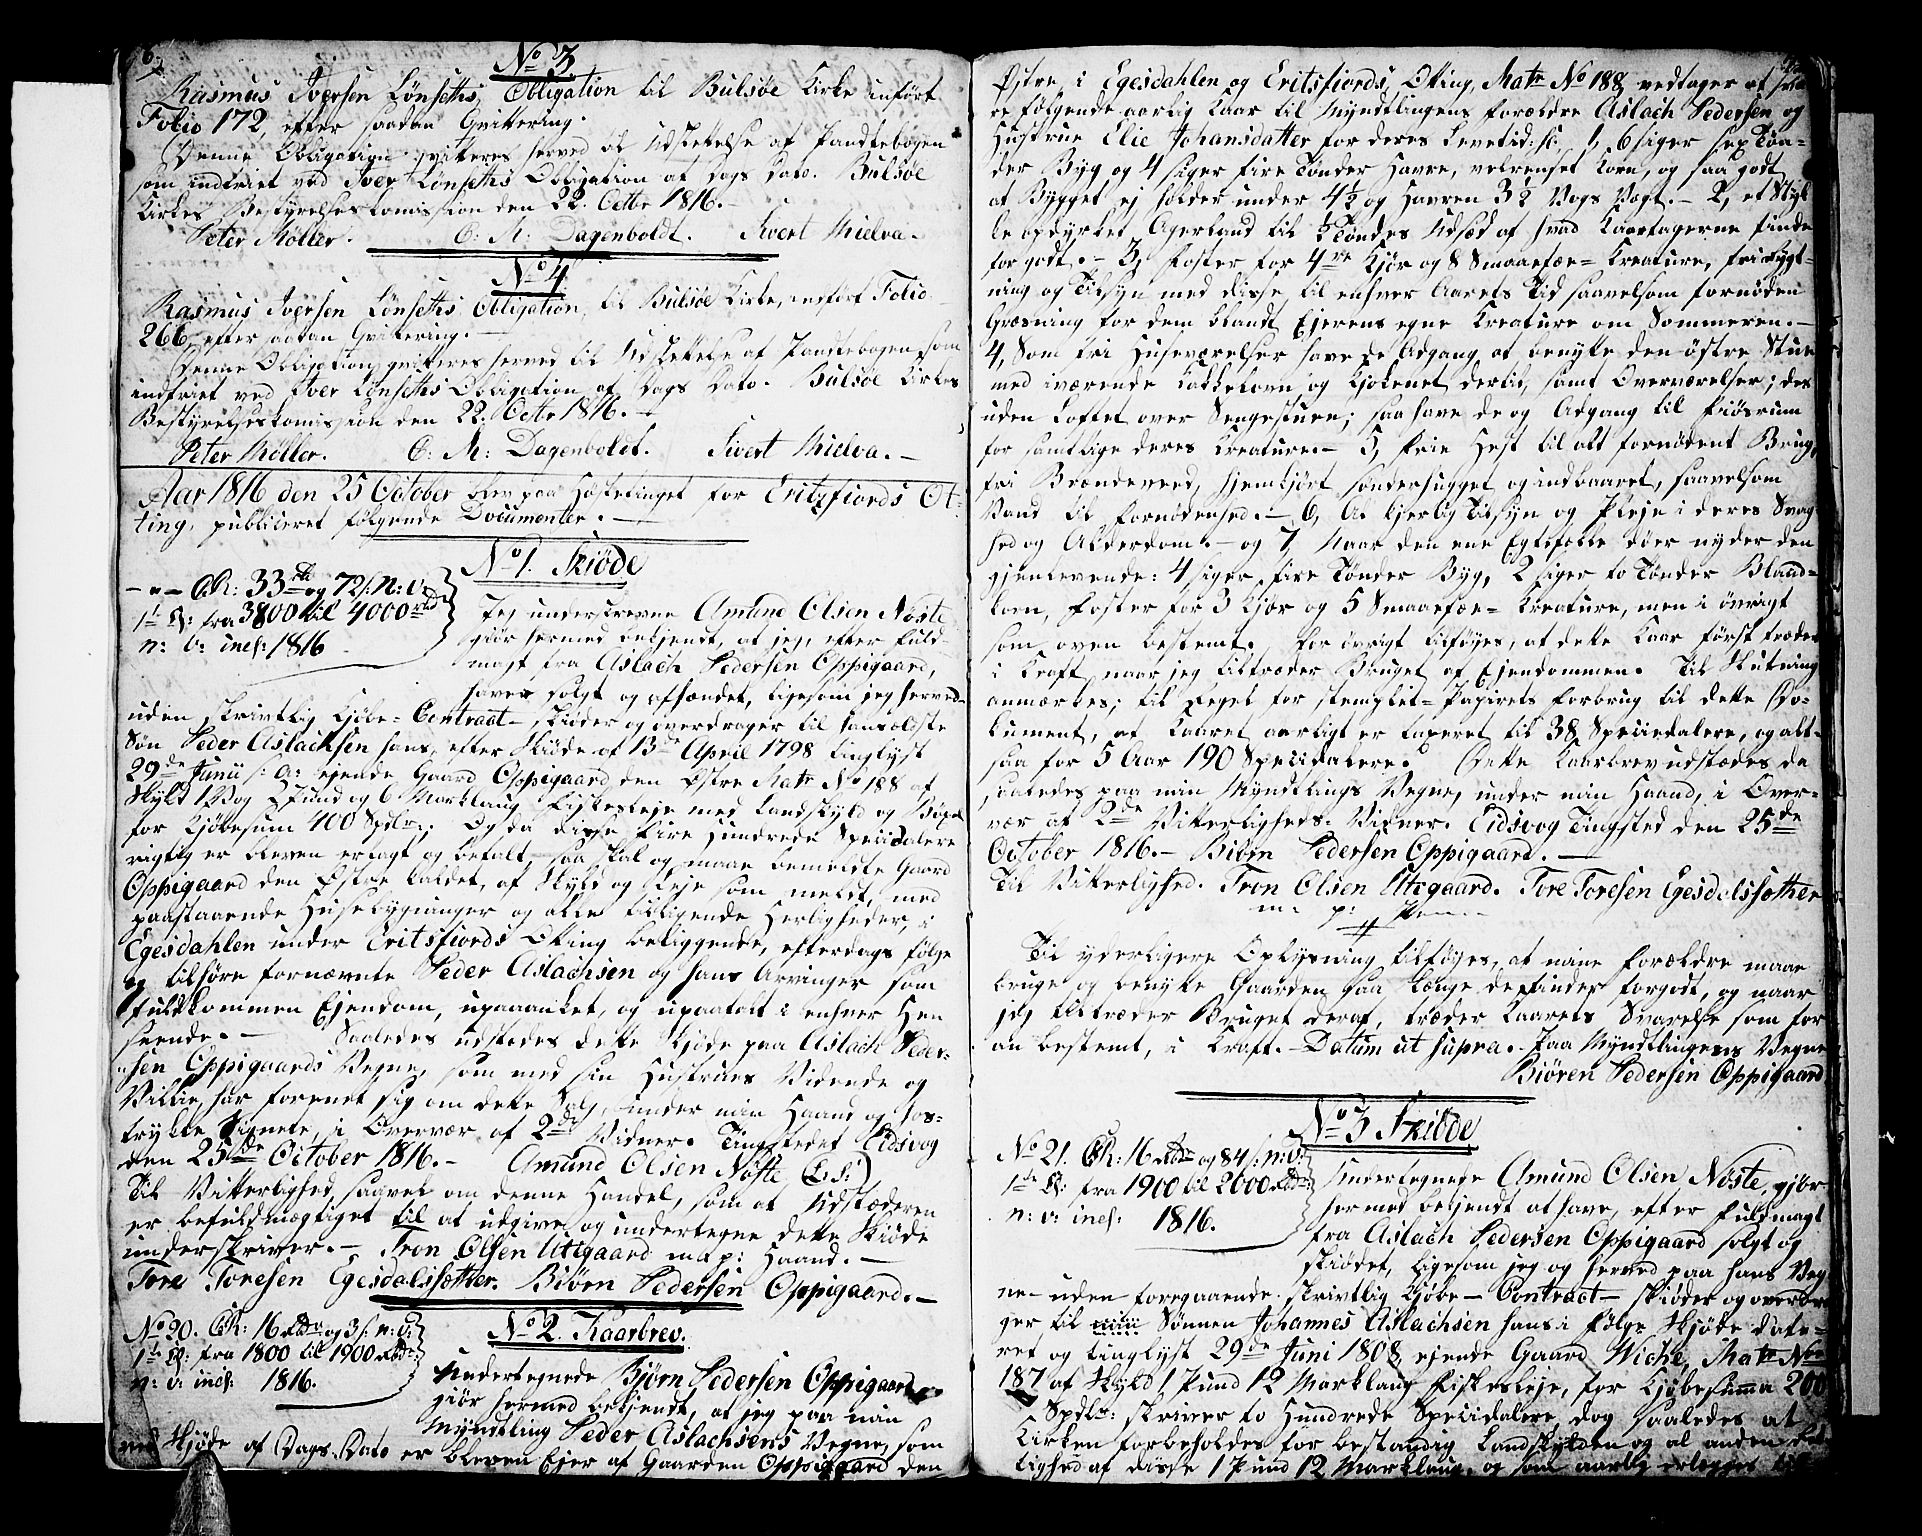 No 3
Rasmus Iversen Lønseths Obligation til Bulsøe Kirke indført
Folio 172, efter saadan Qvittering.
Denne Obligation qvitteres herved til Udslettelse af Pandtebogen
som indfriet ved Iver Lønseths Obligation af Dags Dato. Bulsøe
Kirkes Bestyrelseskomission den 22. Octbr 1816.
Peter Møller. C: M: Dagenboldt. Sivert Mielva.
No 4
Rasmus Iversen Lønseths Obligation til Bulsøe Kirke, indført Folio
266, efter saadan Qvittering.
Denne Obligation qvitteres herved til Udslettelse af Pandtebogen, som
indfriet ved Iver Lønseths Obligation af Dags Dato. Bulsøe Kirkes
Bestyrelseskomission den 22. Octbr 1816.
Peter Møller. C: M: Dagenboldt. Sivert Mielva.
Aar 1816 den 25 October blev paa Høstetinget for Eritzfiords Ot-
ting, publiceret følgende Documenter.
No 1. Skiøde
CR: 33 rbd og 72 s: n: v:
1te Q: fra 3800 til 4000 rbd
n: v: incl: 1816
Jeg underskrevne Amund Olsen Nøste
giør hermed bekjendt, at jeg, efter Fuld-
magt fra Aslach Pedersen Oppigaard,
haver solgt og afhændet, ligesom jeg herved
uden skrivtlig Kjøbe-Contract skiøder og overdrager til hans ældste
Søn Peder Aslachsen hans, efter Skiøde af 13de April 1798 tinglyst
29de Junii s: A: ejende Gaard Oppigaard den Østre Matr No 188 af
Skyld 1 Vog 2 Pund og 6 Marklaug Fiskesleje med Landskyld og Bøxel
for Kjøbesum 400 Spdlr; Og da disse fire Hundrede Speciedalere
rigtig er bleven erlagt og betalt, saa skal og maae bemeldte Gaard
Oppigaard den Østre kaldet, af Skyld og Leje som meldt, med
paastaaende Husebygninger og alle tilligende Herligheder, i
Egesdahlen under Eritsfiords Otting beliggende, efterdags følge
og tilhøre fornævnte Peder Aslachsen og hans Arvinger som
fuldkommen Ejendom, upaaanket, og upaatalt i enhver Hen
seende. Saaledes udstædes dette Skjøde paa Aslach Peder-
sen Oppigaards Vegne, som med sin Hustrues Vidende og
Villie har forenet sig om dette Salg, under min Haand og hos-
trykte Signete, i Overvær af 2de Vidner. Tingstedet Eidsvog
den 25de October 1816. Amund Olsen Nøste (L.S:)
Til Vitterlighed, saavel om denne Handel, som at Udstæderen
er befuldmægtiget til at udgive og undertegne dette Skiøde
underskriver. Tron Olsen Utigaard m. p: Haand.
Tore Toresen Egesdalssæther. Biørn Pedersen Oppigaard.
No 2. Kaarbrev.
No 20. CR: 16 rbdr og 3 s: n: v:
1te Q: fra 1800 til 1900 rbdr
n: v: incl: 1816.
Undertegnede Bjørn Pedersen Oppigaard
giør hermed bekjendt, at jeg paa min
Myndtling Peder Aslachsens Vegne, som
ved Skjøde af Dags Dato er bleven Ejer af Gaarden Oppigaard den
Østre i Egesdahlen og Eritsfiords Otting, Matr No 188 vedtager at sva-
re følgende aarlig Kaar til Myndtlingens Forældre Aslach Pedersen og
Hustrue Elie Johansdatter for deres Levetid: 1, 6 siger sex Tøn-
der Byg og 4 siger fire Tønder Havre, velrenset Korn, og saa godt
at Bygget ej holder under 4½ og Havren 3½ Vogs Vægt. 2, et Styk-
ke opdyrket Agerland til ½ Tøndes Udsæd af hvad Kaartagerne finde
for godt. 3, Foster for 4re Kjør og 8 Smaaefæe-Kreature, fri Rygt-
ning og Tilsyn med disse til enhver Aarets Tid saavelsom fornøden
Græsning for dem blandt Ejerens egne Kreature om Sommeren.
4, Som fri Huseværelser have de Adgang at benytte den østre Stue
med iværende Kakkelovn og Kjøkenet dertil, samt Overværelser; des
uden Loftet over Sengestuen; saa have de og Adgang til Fiøsrum
for samtlige deres Kreature. 5, Frie Hest til alt fornødent Brug,
fri Brændeveed, hjemkjørt sønderhugget og indbaaret, saavelsom
Vand til Fornødenhed. 6, En kjerlig Tilsyn og Pleje i deres Svag-
hed og Alderdom. og 7, Naar den ene Egtefælle døer nyder den
gjenlevende: 4 siger fire Tønder Byg, 2 siger to Tønder Bland-
korn, Foster for 3 Kjør og 5 Smaaefæe-Kreature, men i øvrigt
som oven bestemt. For øvrigt tilføyes, at dette Kaar først træder
i Kraft naar jeg tiltræder Bruget af Ejendommen. Til Slutning
anmærkes; til Regel for stemplet-Papirets Forbrug til dette Do-
kument, at Kaaret aarligt er taxeret til 38 Speciedalere, og alt-
saa for 5 Aar 190 Speciidalere. Dette Kaarbrev udstædes da
saaledes paa min Myndtlings Vegne, under min Haand, i Over-
vær af 2de Vitterligheds-Vidner. Eidsvog Tingsted den 25de
October 1816. Biørn Pedersen Oppigaard.
Til Vitterlighed. Tron Olsen Utigaard. Tore Toresen Egesdalssæther
m: p: Pen.
Til yderligere Oplysning tilføyes, at mine Forældre maae
bruge og benytte Gaarden saa længe de finder forgodt, og naar
jeg tiltræder Bruget deraf, træder Kaarets Svarelse som for
an bestemt, i Kraft. Datum ut supra. Paa Myndtlingens Vegne
Biøren Pedersen Oppigaard
No 3 Skiøde
No 21. CR: 16 rbdr og 84 s: n: v:
1te Q: fra 1900 til 2000 rbdr
n: v: incl: 1816.
Undertegnede Amund Olsen Nøste, gjør
hermed bekjendt at have, efter Fuldmagt
fra Aslach Pedersen Oppigaard solgt og
skiødet, ligesom jeg og herved paa hans Veg
ne uden foregaaende skrivtlig Kjøbe-Contract skiøder og overdra
ger til Sønnen Johannes Aslachsen hans i følge Skjøde date-
ret og tinglyst 29de Juni 1808 ejende Gaard Wiche, Matr No
187 af Skyld 1 Pund 12 Marklaug Fiskesleje, for Kjøbesumma 200
Spdlr: skriver to Hundrede Speciedalere, dog saaledes at
Kirken forbeholdes for bestandig Landskylden og al anden
lighed af disse 1 Pund 12 Marklaug, og som aarlig erlægges til